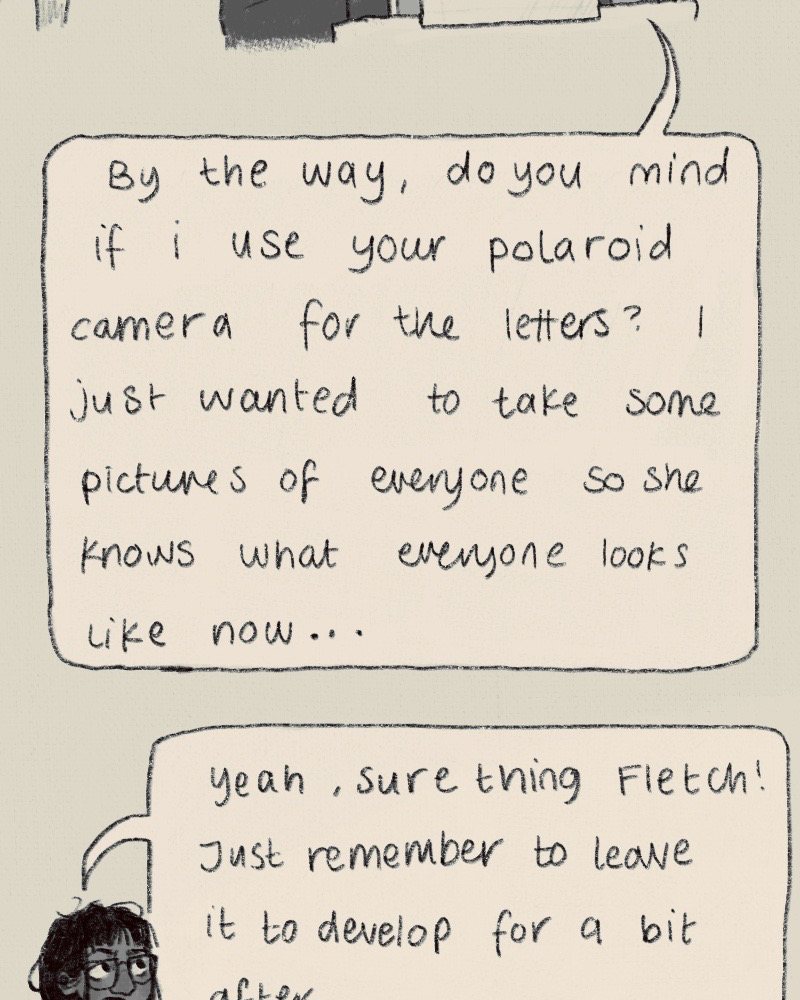 By the way, do you mind
if i use your polaroid
camera for the letters? I
just wanted to take some
pictures of everyone so she
knows what everyone looks
like now...
yeah, sure thing Fletch!
Just remember to leave
it to develop for a bit
after